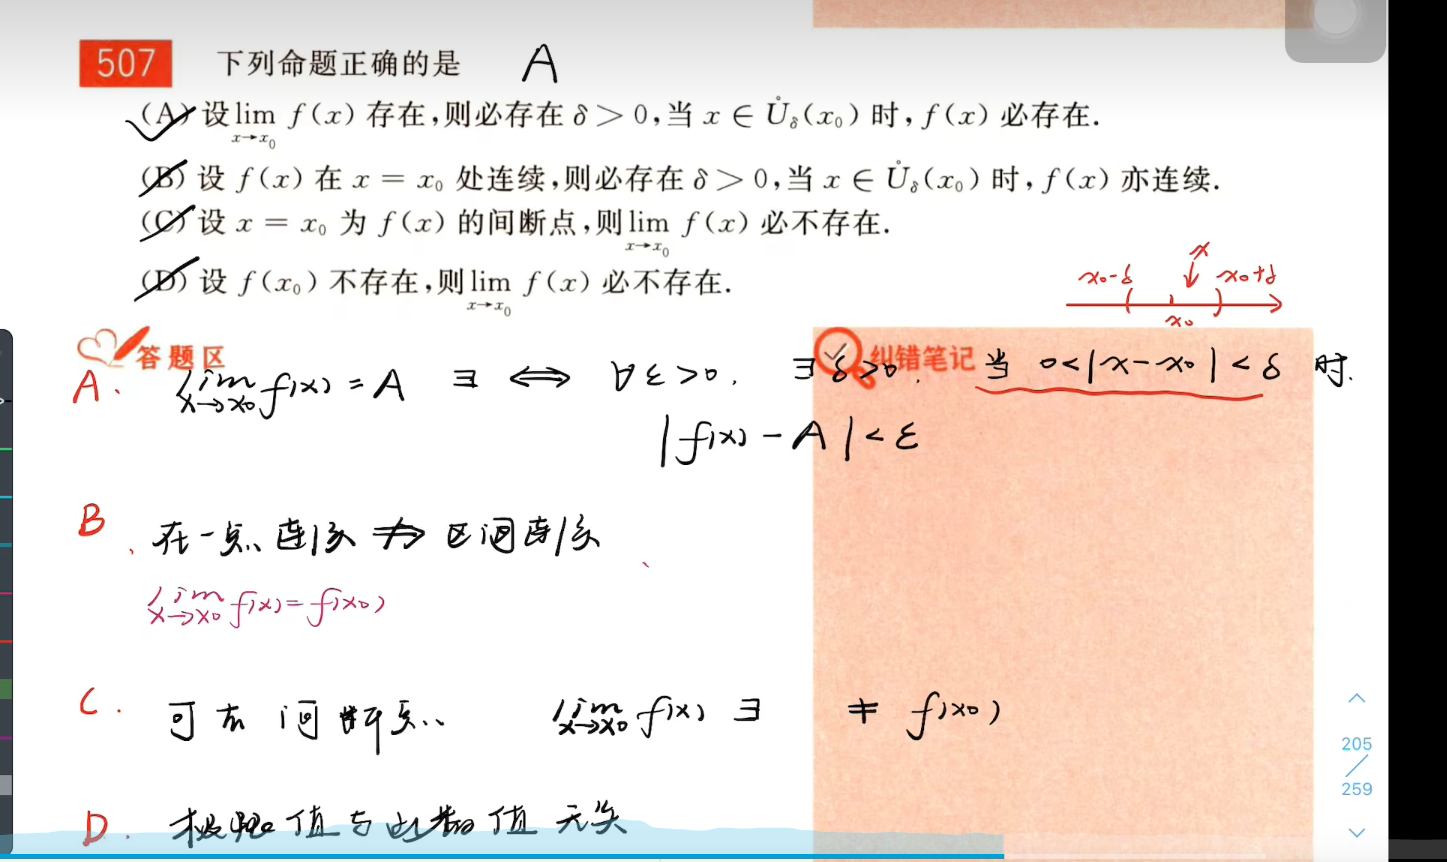 507 下列命题正确的是 A
(A) 设 lim x→x₀ f(x) 存在,则必存在 δ > 0,当 x ∈ Ů_δ(x₀) 时,f(x) 必存在.
(B) 设 f(x) 在 x = x₀ 处连续,则必存在 δ > 0,当 x ∈ Ů_δ(x₀) 时,f(x) 亦连续.
(C) 设 x = x₀ 为 f(x) 的间断点,则 lim x→x₀ f(x) 必不存在.
(D) 设 f(x₀) 不存在,则 lim x→x₀ f(x) 必不存在.
x
x₀-δ x₀+δ
x₀
答题区 纠错笔记
A. lim x→x₀ f(x) = A ∃ ⟺ ∀ε>0, ∃δ>0, 当 0<|x-x₀|<δ 时.
|f(x) - A| < ε
B、 在一点连续 ⇏ 区间连续
lim x→x₀ f(x) = f(x₀)
C. 可去间断点.. lim x→x₀ f(x) ∃ ≠ f(x₀)
D. 极限值与函数值无关
205
/
259